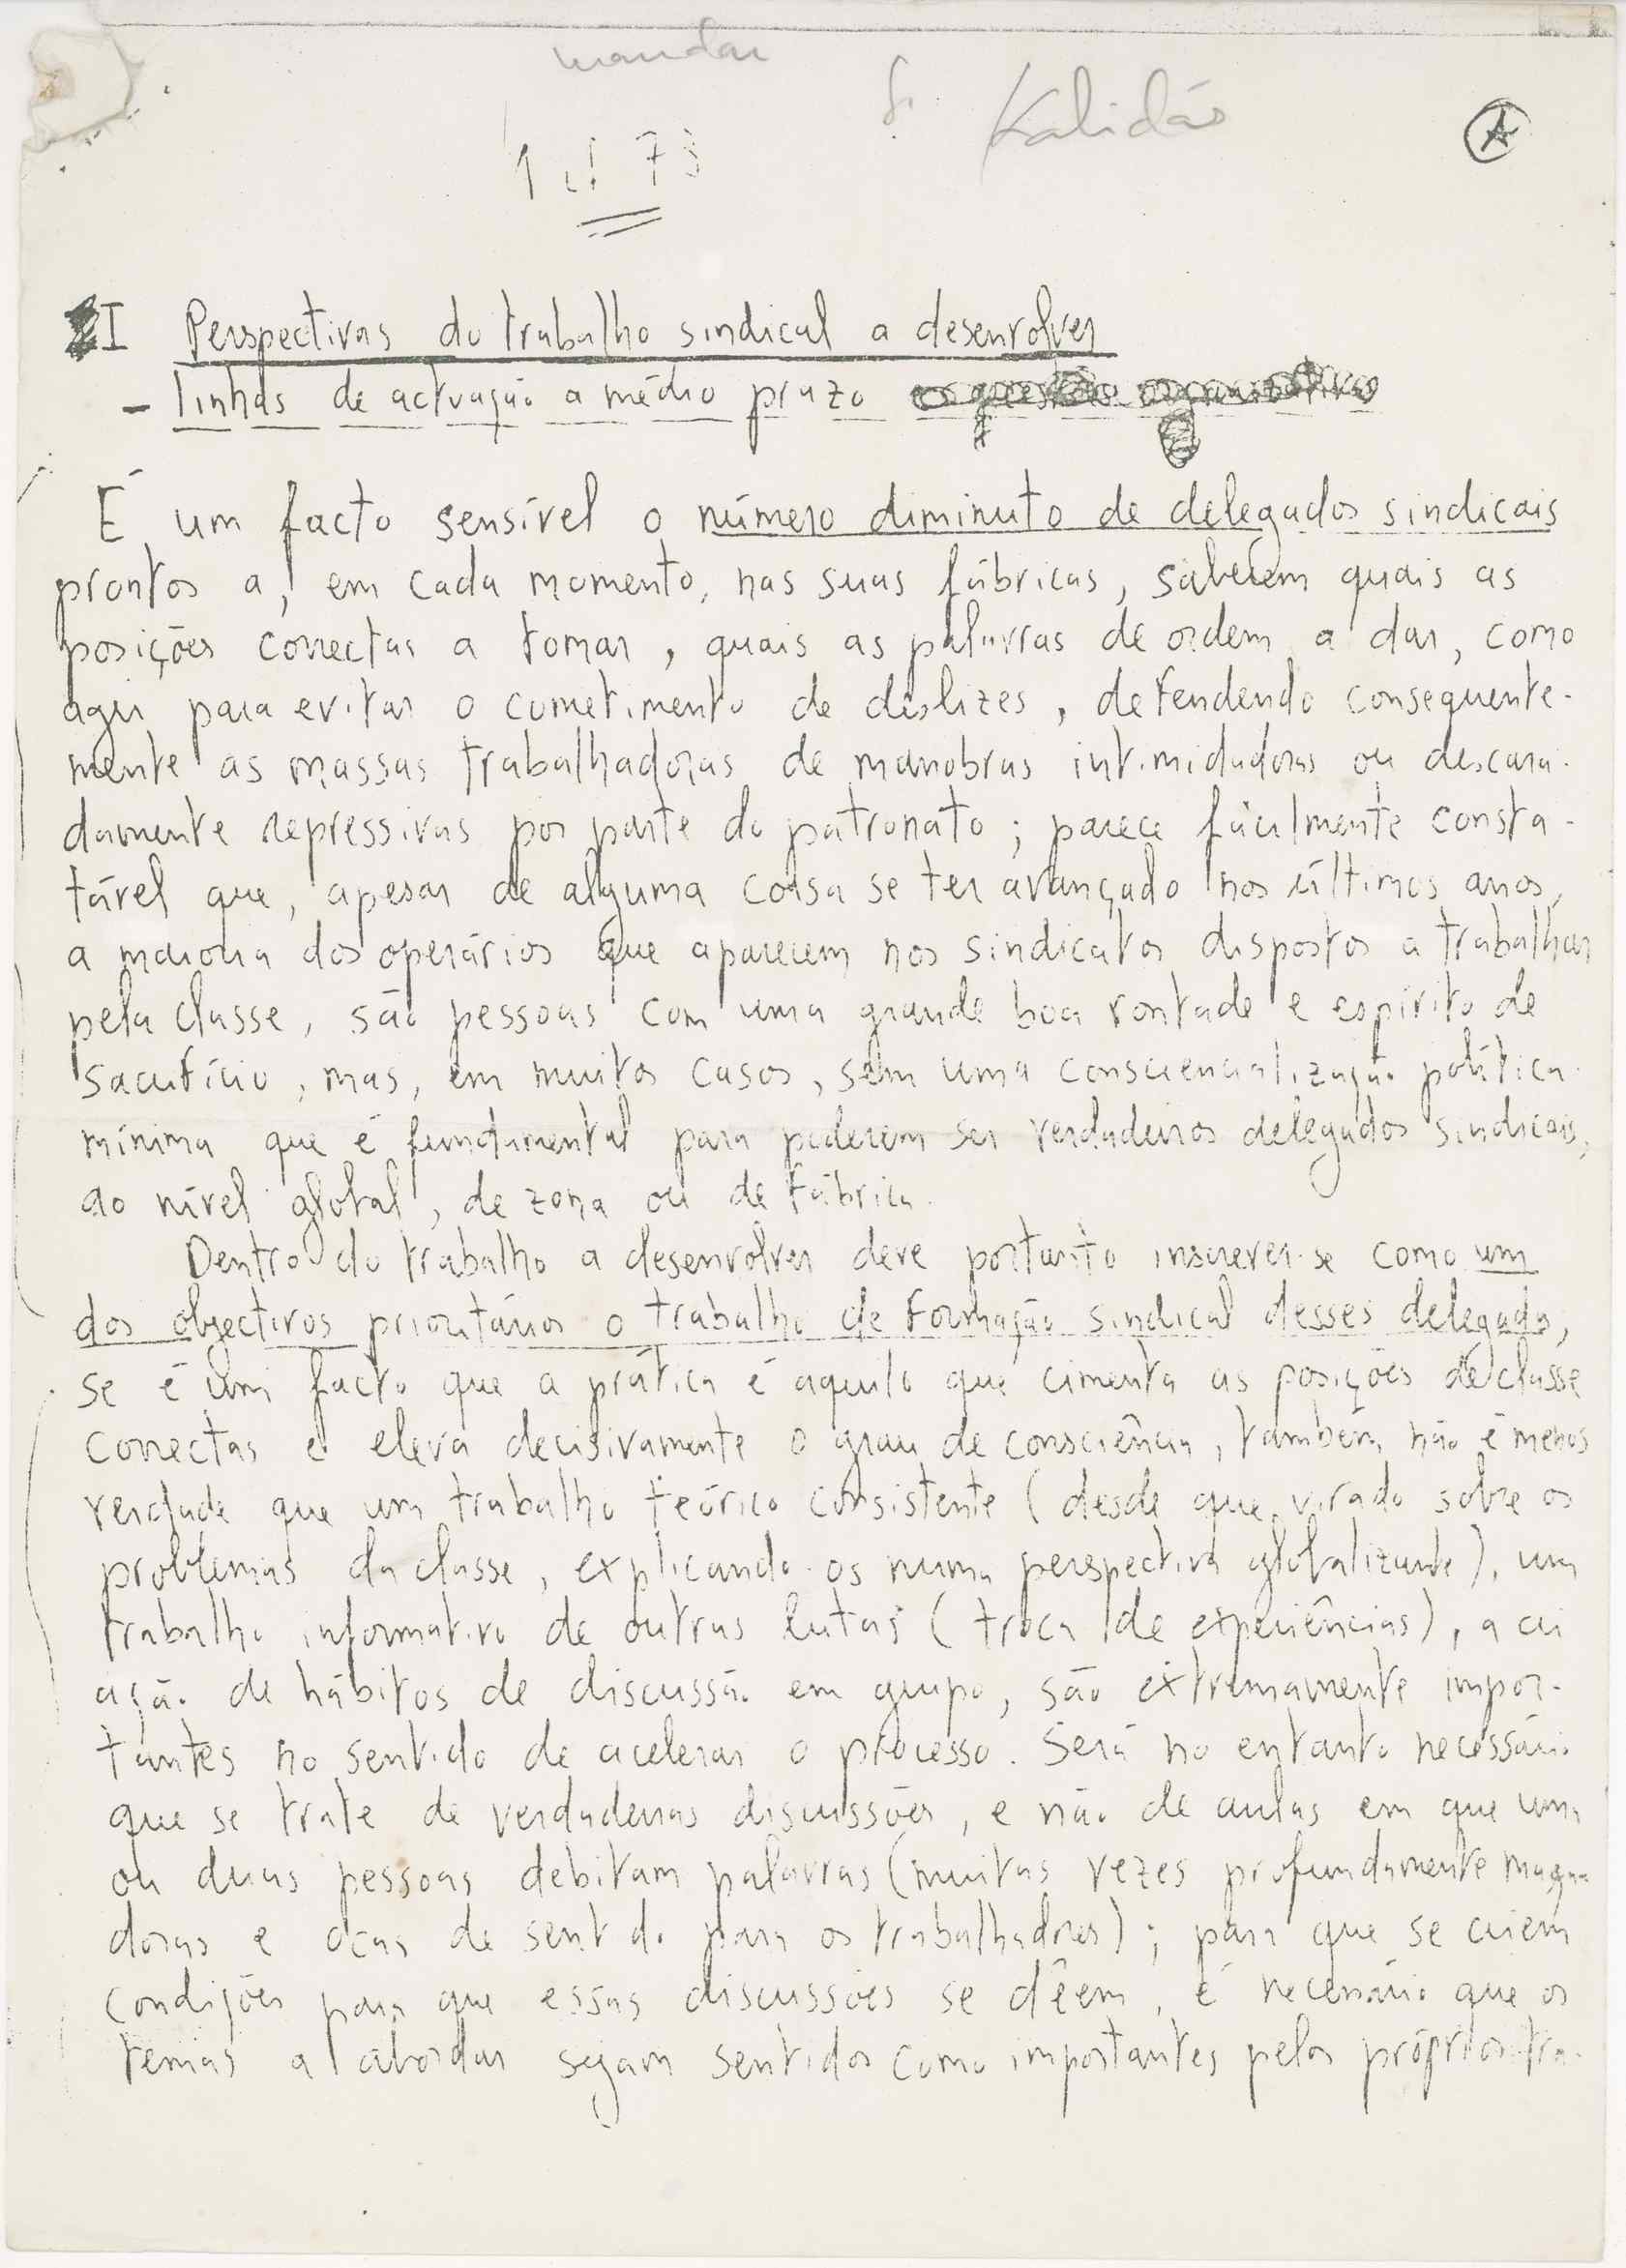 mandar
Kalidás
A
I Perspectivas do trabalho sindical a desenvolver
- linhas de actuação a médio prazo
É um facto sensível o número diminuto de delegados sindicais
prontos a, em cada momento, nas suas fábricas, saberem quais as
posições correctas a tomar, quais as palavras de ordem a dar, como
agir para evitar o cometimento de deslizes, defendendo consequente-
mente as massas trabalhadoras de manobras intimidadoras ou descara-
damente repressivas por parte do patronato; parece fácilmente consta-
tável que, apesar de alguma coisa se ter avançado nos últimos anos,
a maioria dos operários que aparecem nos sindicatos dispostos a trabalhar
pela classe, são pessoas com uma grande boa vontade e espírito de
sacrifício, mas, em muitos casos, sem uma consciencialização política
mínima que é fundamental para poderem ser verdadeiros delegados sindicais,
ao nível global, de zona ou de fábrica.
Dentro do trabalho a desenvolver deve portanto inscrever-se como um
dos objectivos prioritários o trabalho de formação sindical desses delegados,
se é um facto que a prática é aquilo que cimenta as posições de classe
correctas e eleva decisivamente o grau de consciência, também não é menos
verdade que um trabalho teórico consistente (desde que virado sobre os
problemas da classe, explicando-os numa perspectiva globalizante), um
trabalho informativo de outras lutas (troca de experiências), a cri
ação de hábitos de discussão em grupo, são extremamente impor-
tantes no sentido de acelerar o processo. Será no entanto necessário
que se trate de verdadeiras discussões, e não de aulas em que uma
ou duas pessoas debitam palavras (muitas vezes profundamente maça
doras e ocas de sentido para os trabalhadores); para que se criem
condições para que essas discussões se dêem, é necessário que os
temas a abordar sejam sentidos como importantes pelos próprios tra-